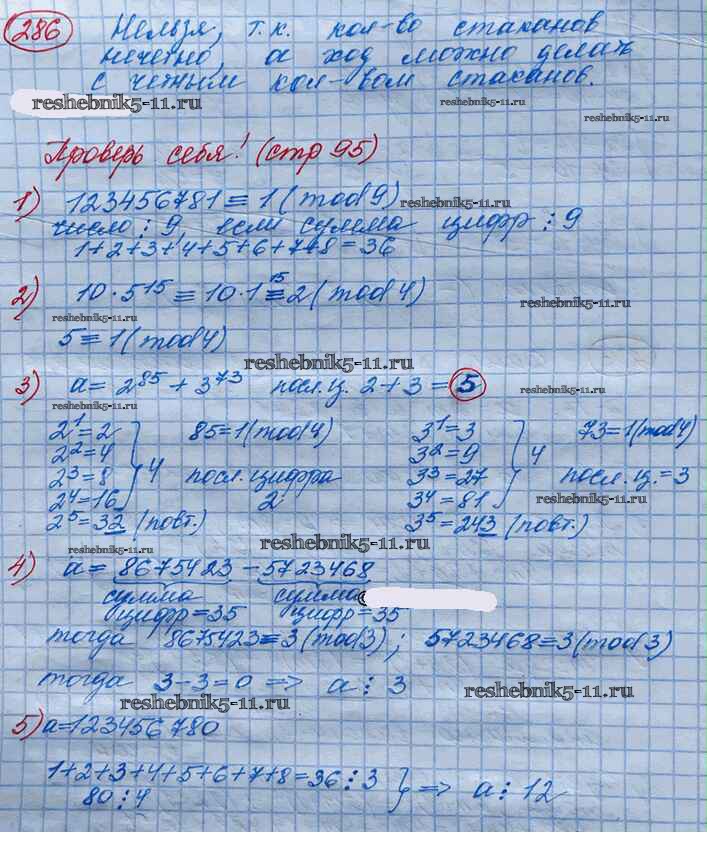 286 Нельзя, т.к. кол-во стаканов
нечетно, а ход можно делать
с четным кол-вом стаканов.
reshebnik5-11.ru
reshebnik5-11.ru
reshebnik5-11.ru
Проверь себя! (стр 95)
1) 123456781 ≡ 1 (mod 9)
reshebnik5-11.ru
число ⋮ 9, если сумма цифр ⋮ 9
1+2+3+4+5+6+7+8=36
2) 10·5¹⁵ ≡ 10·1¹⁵ ≡ 2 (mod 4)
reshebnik5-11.ru
reshebnik5-11.ru
5 ≡ 1 (mod 4)
reshebnik5-11.ru
3) a = 2⁸⁵ + 3⁷³ посл.ц. 2+3=5
reshebnik5-11.ru
2¹=2 85=1(mod 4) 3¹=3 73=1(mod 4)
2²=4 3²=9
2³=8 4 посл. цифра 3³=27 4 посл. ц.=3
2⁴=16 2 3⁴=81
reshebnik5-11.ru
2⁵=32 (повт.) 3⁵=243 (повт.)
reshebnik5-11.ru
reshebnik5-11.ru
4) a = 8675423 – 5723468
сумма сумма
цифр=35 цифр=35
тогда 8675423≡3(mod 3); 5723468=3(mod 3)
тогда 3–3=0 => a ⋮ 3
reshebnik5-11.ru
reshebnik5-11.ru
5) a=123456780
1+2+3+4+5+6+7+8=36 ⋮ 3
80 ⋮ 4 } => a ⋮ 12